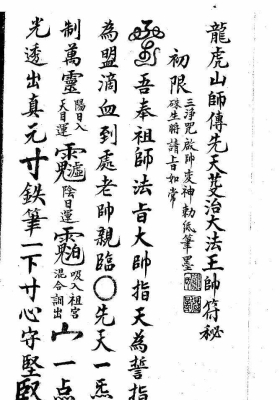 龍虎山師傳先天艾治大法王帥符秘
初限
三淨咒啟帥変神勅低筆墨
硃生將請㫖如常
吾奉祖師法㫖大帥指天為誓指
為盟滴血到處老帥親臨〇先天一炁
制萬靈
陽日入
天目運
陰日運
吸入祖宮
混合調出
山一点
光透出真元寸鉄筆一下寸心守堅